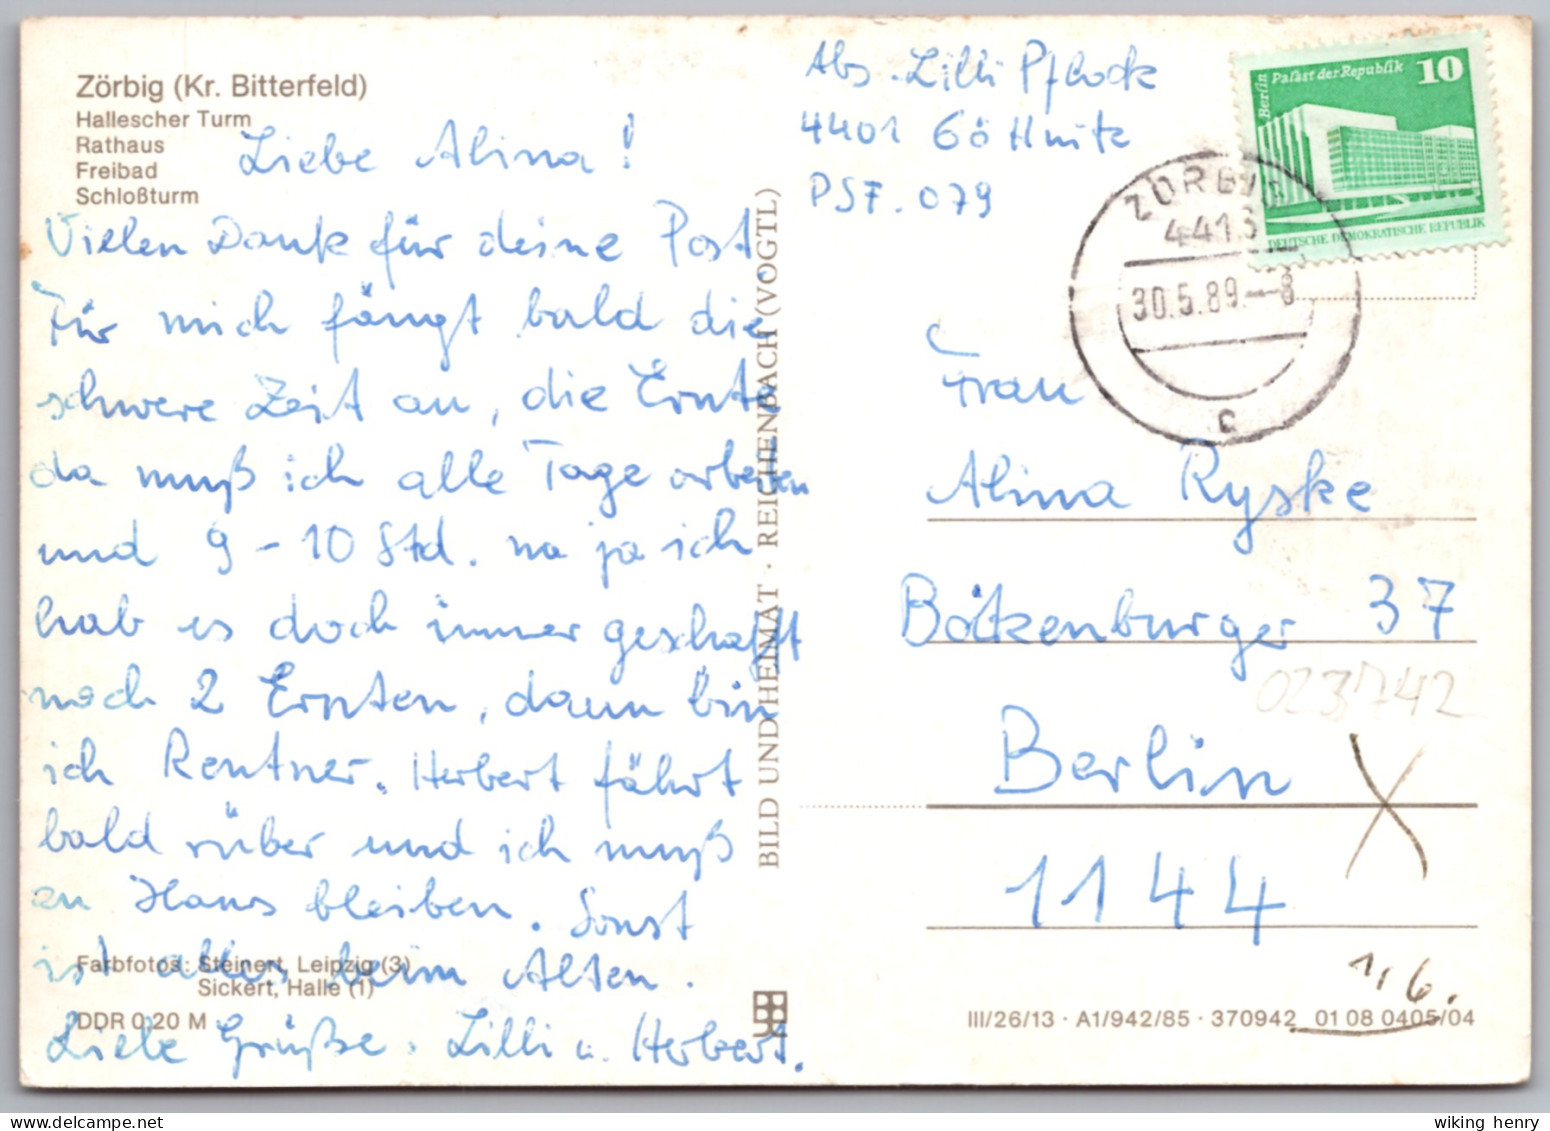 Zörbig (Kr. Bitterfeld)
Hallescher Turm
Rathaus
Freibad
Schloßturm
Liebe Alina!
Vielen Dank für deine Post.
Für mich fängt bald die
schwere Zeit an, die Ernte
da muß ich alle Tage arbeiten
und 9-10 Std. na ja ich
hab es doch immer geschafft
noch 2 Ernten, dann bin
ich Rentner. Herbert fährt
bald rüber und ich muß
zu Haus bleiben. Sonst
ist alles beim Alten.
Liebe Grüße. Lilli u. Herbert.
Farbfotos: Steinert, Leipzig (3)
Sickert, Halle (1)
DDR 0,20 M
BILD UND HEIMAT · REICHENBACH (VOGTL)
Abs. Lilli Pflock
4401 Göttnitz
PSF. 079
Berlin Palast der Republik 10
DEUTSCHE DEMOKRATISCHE REPUBLIK
ZÖRBIG
4413
30.5.89.--8
c
Frau
Alina Ryske
Bötzenburger 37
023742
Berlin
1144
1,6.
III/26/13 · A1/942/85 · 370942 01 08 0405/04
wiking henry